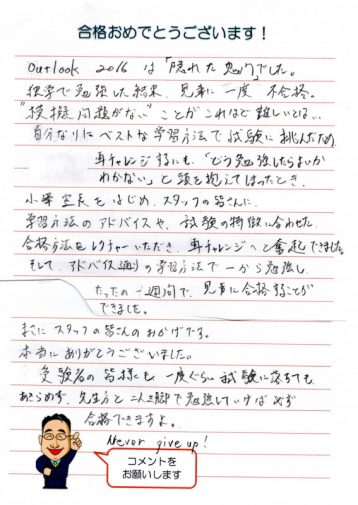 合格おめでとうございます！
Outlook 2016 は「隠れた鬼門」でした。
独学で勉強した結果、見事に一度 不合格。
"模擬問題がない"ことがこれほど難しいとは…
自分なりにベストな学習方法で試験に挑んだため、
再チャレンジするにも、「どう勉強したらよいか
わからない」と頭を抱えてしまったとき、
小澤室長をはじめ、スタッフの皆さんに、
学習方法のアドバイスや、試験の特徴に合わせた
合格方法をレクチャーいただき、再チャレンジへと奮起できました。
そして、アドバイス通りの学習方法で一から勉強し、
たったの一週間で、見事に合格することが
できました。
まさにスタッフの皆さんのおかげです。
本当にありがとうございました。
受験者の皆様にも一度ぐらい試験に落ちても、
あきらめず、先生方と二人三脚で勉強していけば必ず
合格できますよ。
Never give up!
コメントを
お願いします